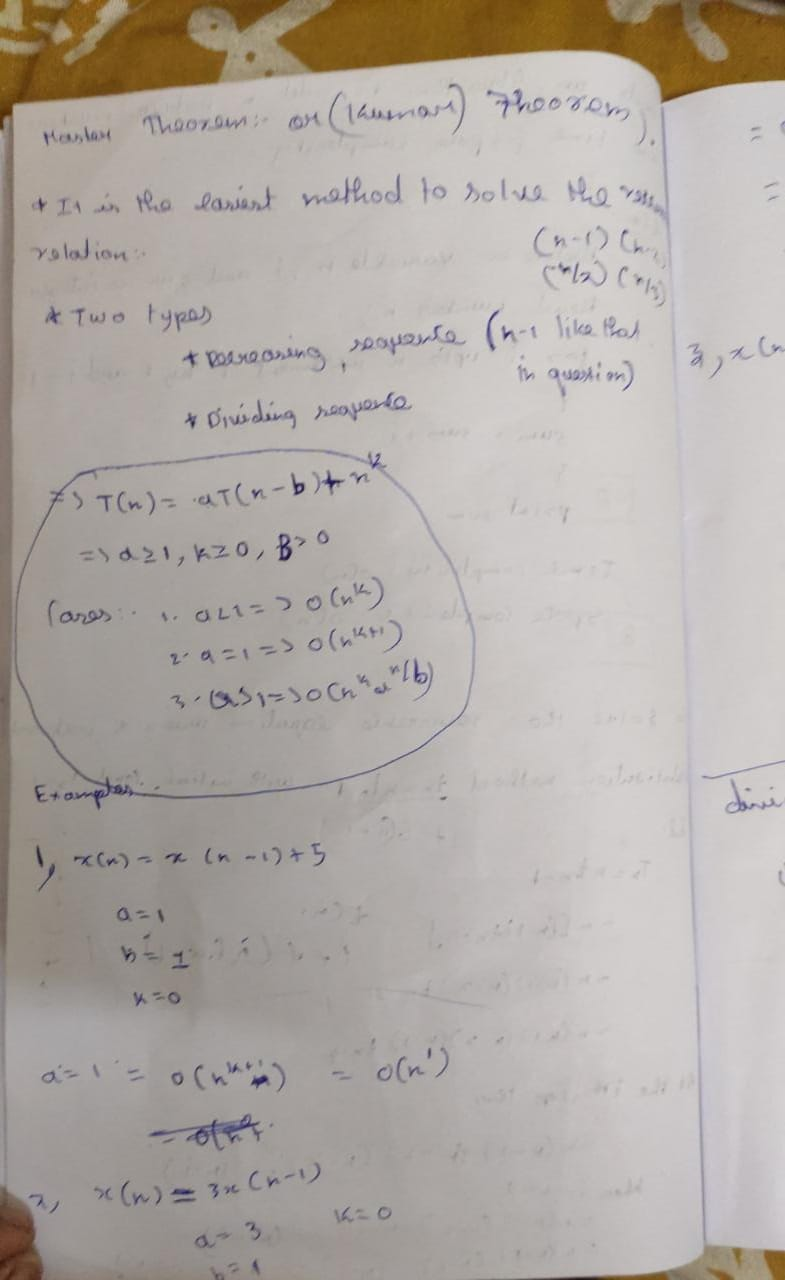 Master Theorem:- or (Kumar) Theorem).
* It is the easiest method to solve the
relation:-
(n-1) (n-2)
(n/2) (n/3)
* Two types
* Decreasing sequence (n-1 like that
in question)
* Dividing sequence
=> T(n) = aT(n-b)+n^k
=> a≥1, k≥0, B>0
Cases:- 1. a<1 => O(n^k)
2. a=1 => O(n^k+1)
3. a>1 => O(n^k a^n/b)
Examples:-
1, x(n) = x(n-1)+5
a=1
b=1
k=0
a=1 = O(n^k+1) = O(n^1)
2, x(n) = 3x(n-1)
a=3 k=0
b=1
=
=
3, x(n
divi